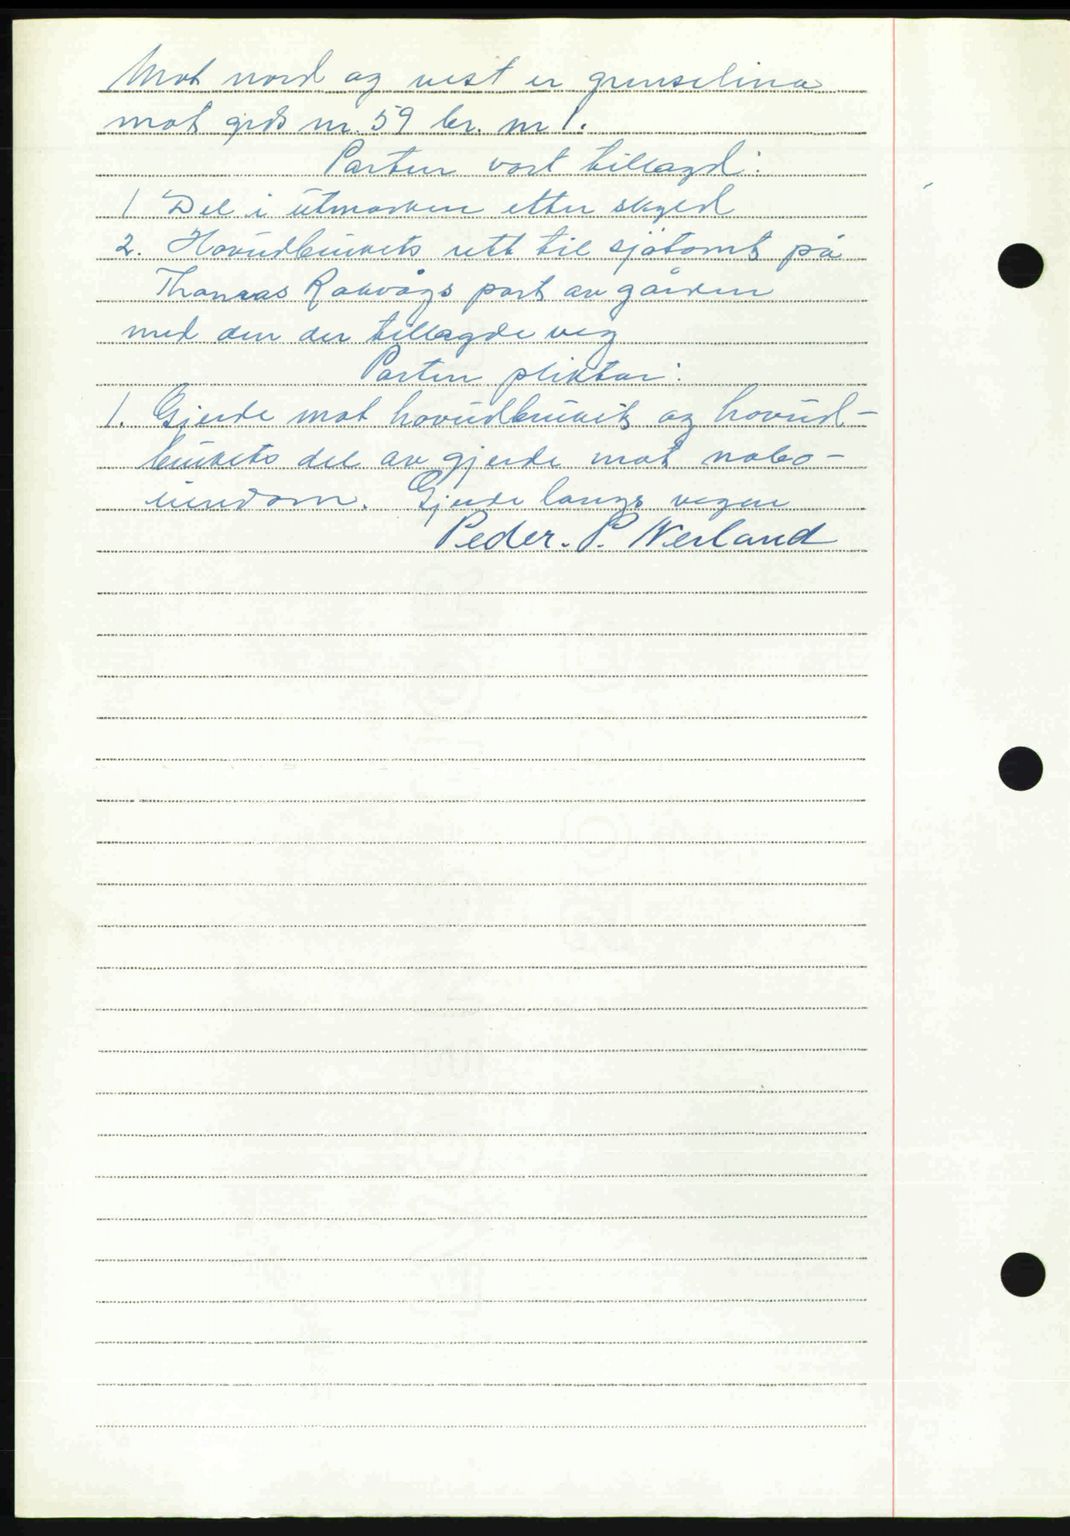 Mot nord og vest er grenselina
mot grds nr. 59 br. nr 1.
Parten vart tillagd:
1 Del i utmarken etter skyld
2. Hovudbrukets rett til sjøtomt på
Thomas Rakvågs part av gården
med den der tillagde veg
Parten pliktar:
1. Gjerde mot hovudbruket og hovud-
brukets del av gjerde mot nabo-
eiendom. Gjerde langs vegen
Peder. P. Nerland